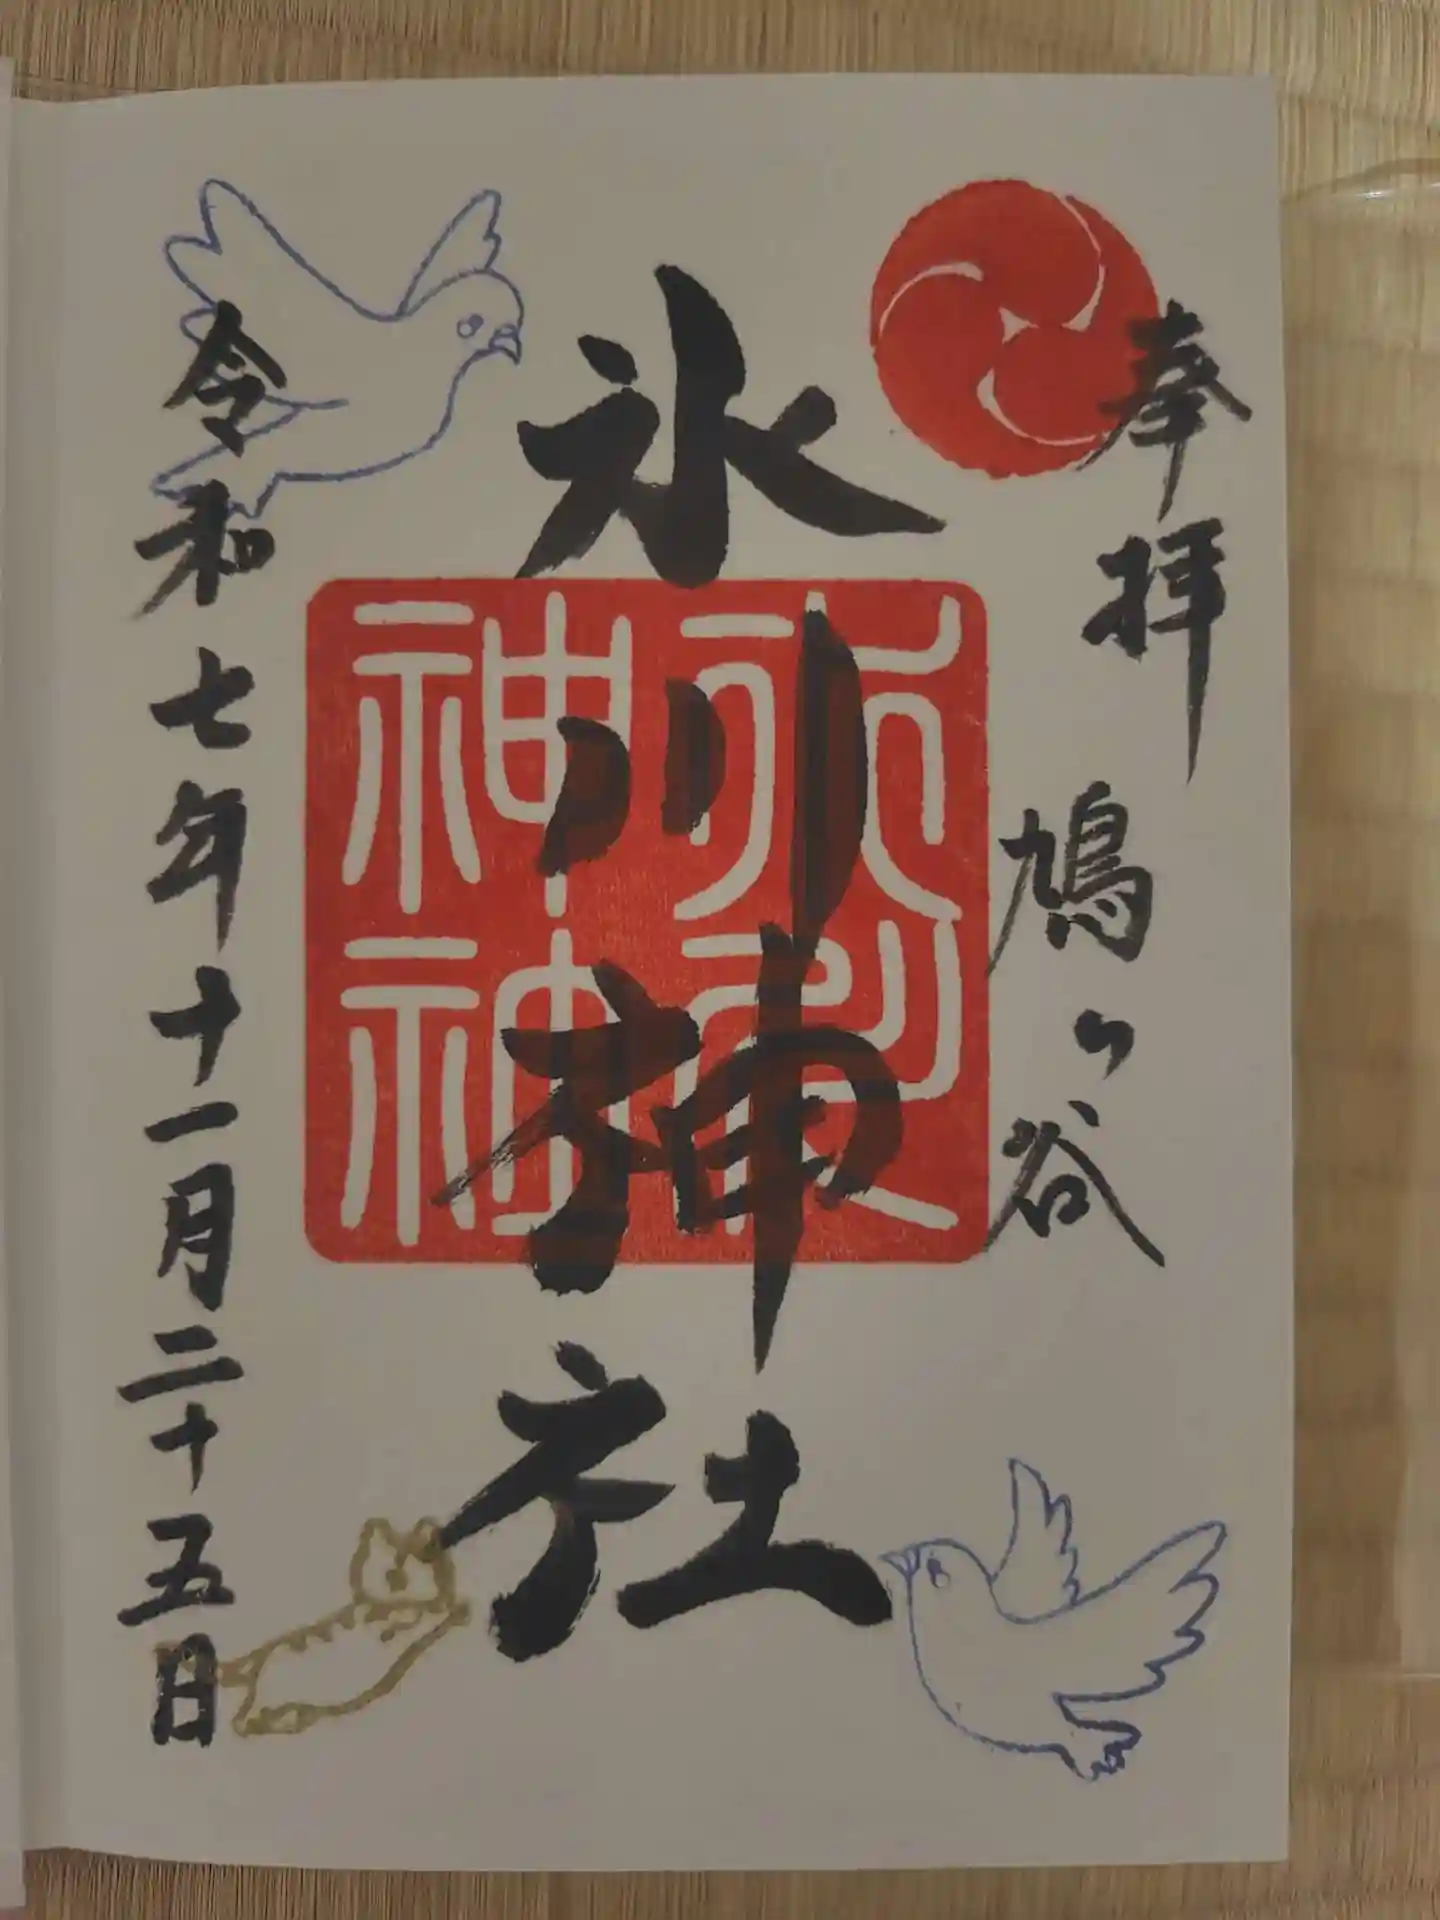 奉拝
鳩ヶ谷
氷川神社
令和七年十一月二十五日